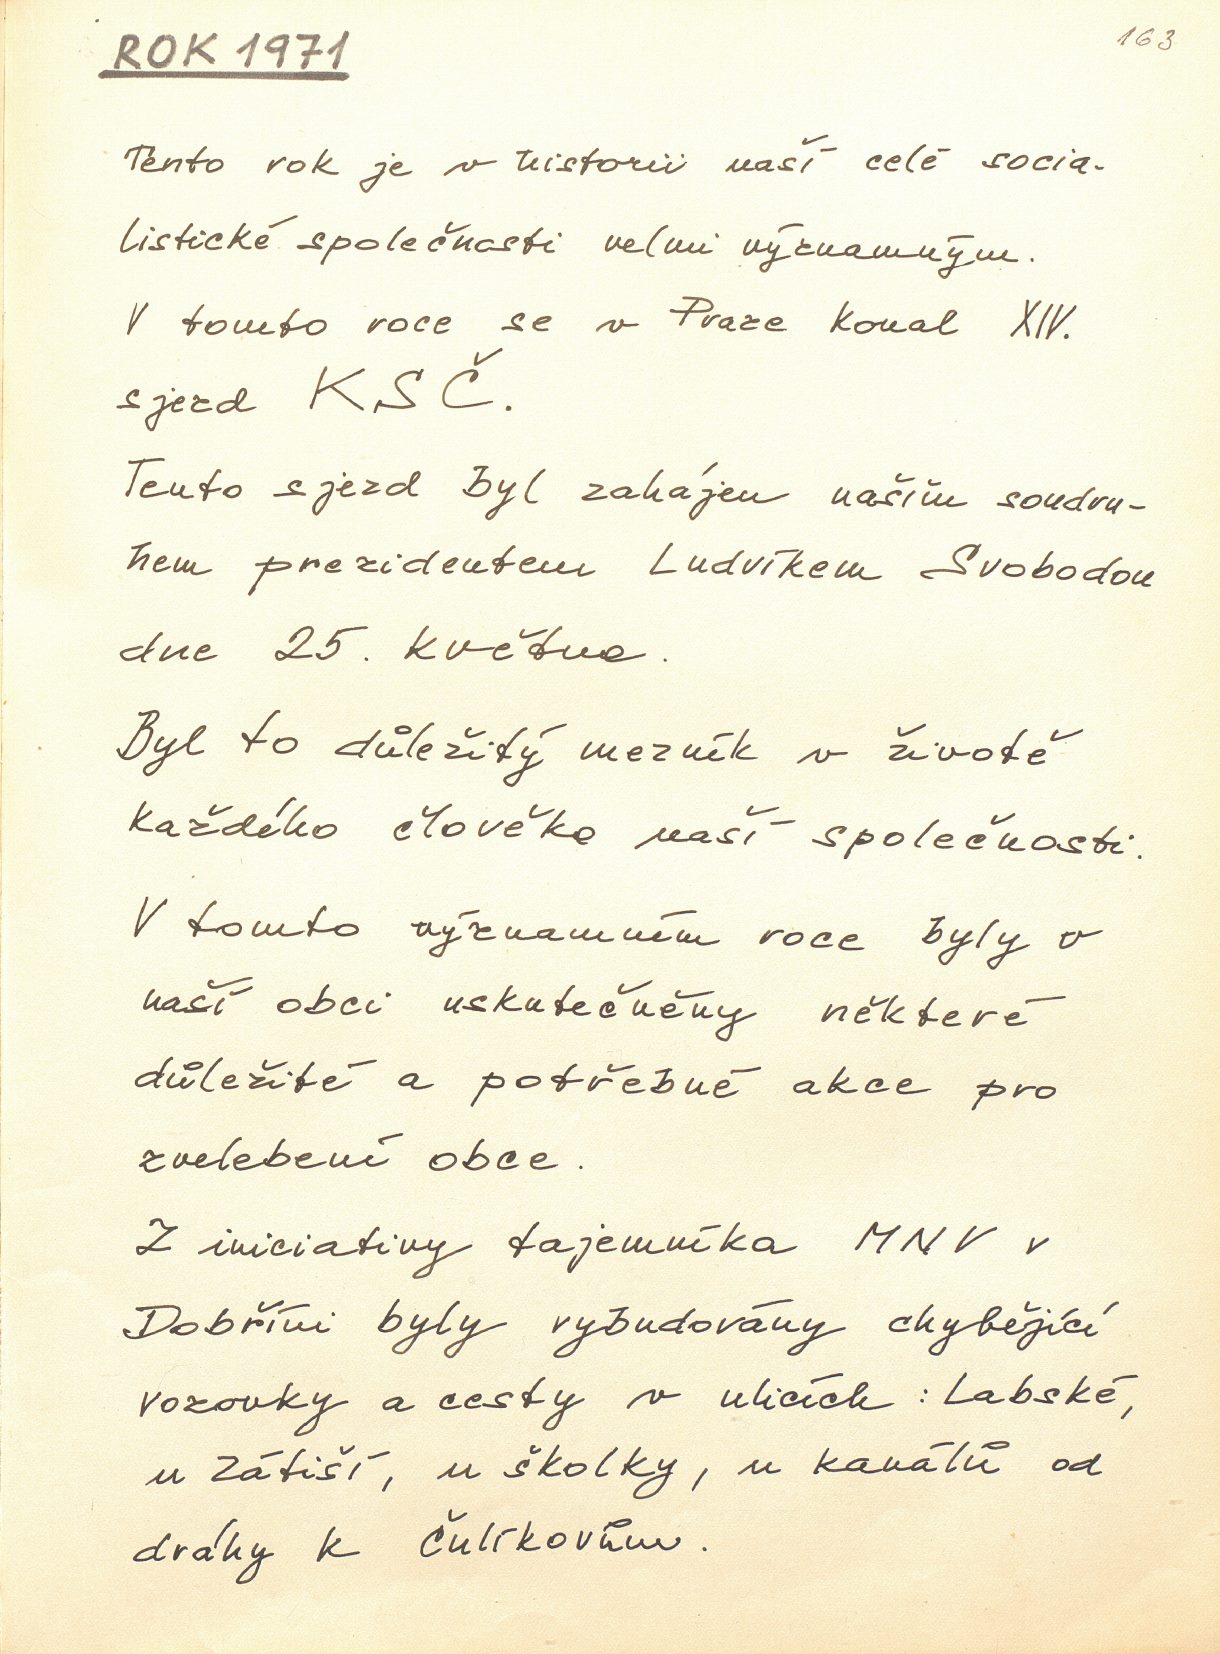 163
ROK 1971
Tento rok je v historii naší celé socia-
listické společnosti velmi významným.
V tomto roce se v Praze konal XIV.
sjezd KSČ.
Tento sjezd byl zahájen naším soudru-
hem prezidentem Ludvíkem Svobodou
dne 25. května.
Byl to důležitý mezník v životě
každého člověka naší společnosti.
V tomto významním roce byly v
naší obci uskutečněny některé
důležité a potřebné akce pro
zvelebení obce.
Z iniciativy tajemníka MNV v
Dobříni byly vybudovány chybějící
vozovky a cesty v ulicích : Labské,
u Zátiší, u školky, u kanálů od
dráhy k Čulíkovům.